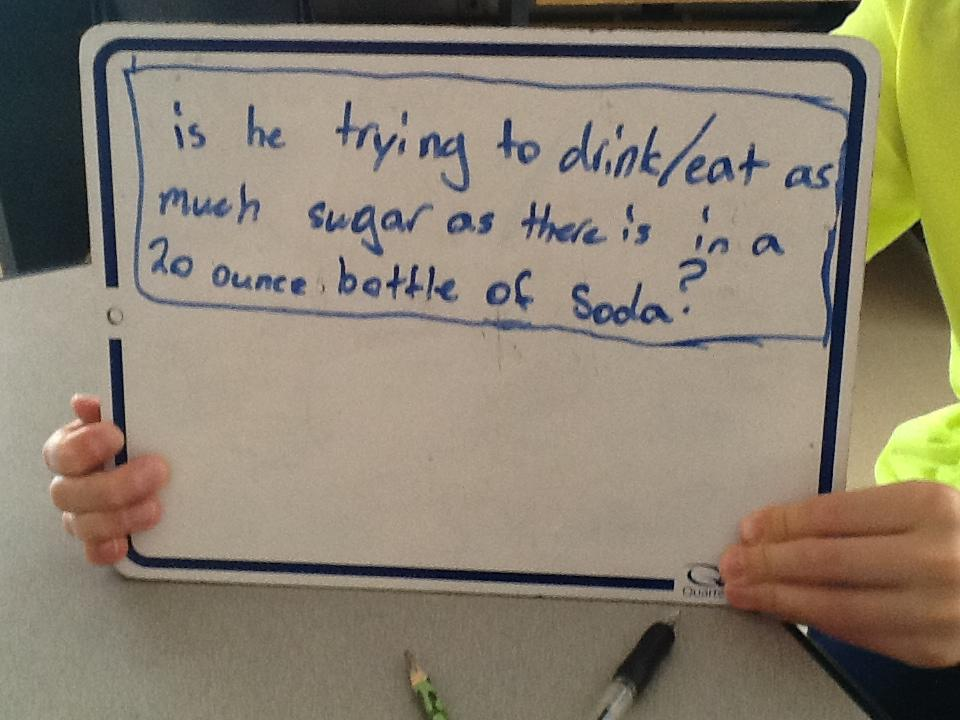 is he trying to drink/eat as
much sugar as there is in a
20 ounce bottle of Soda?